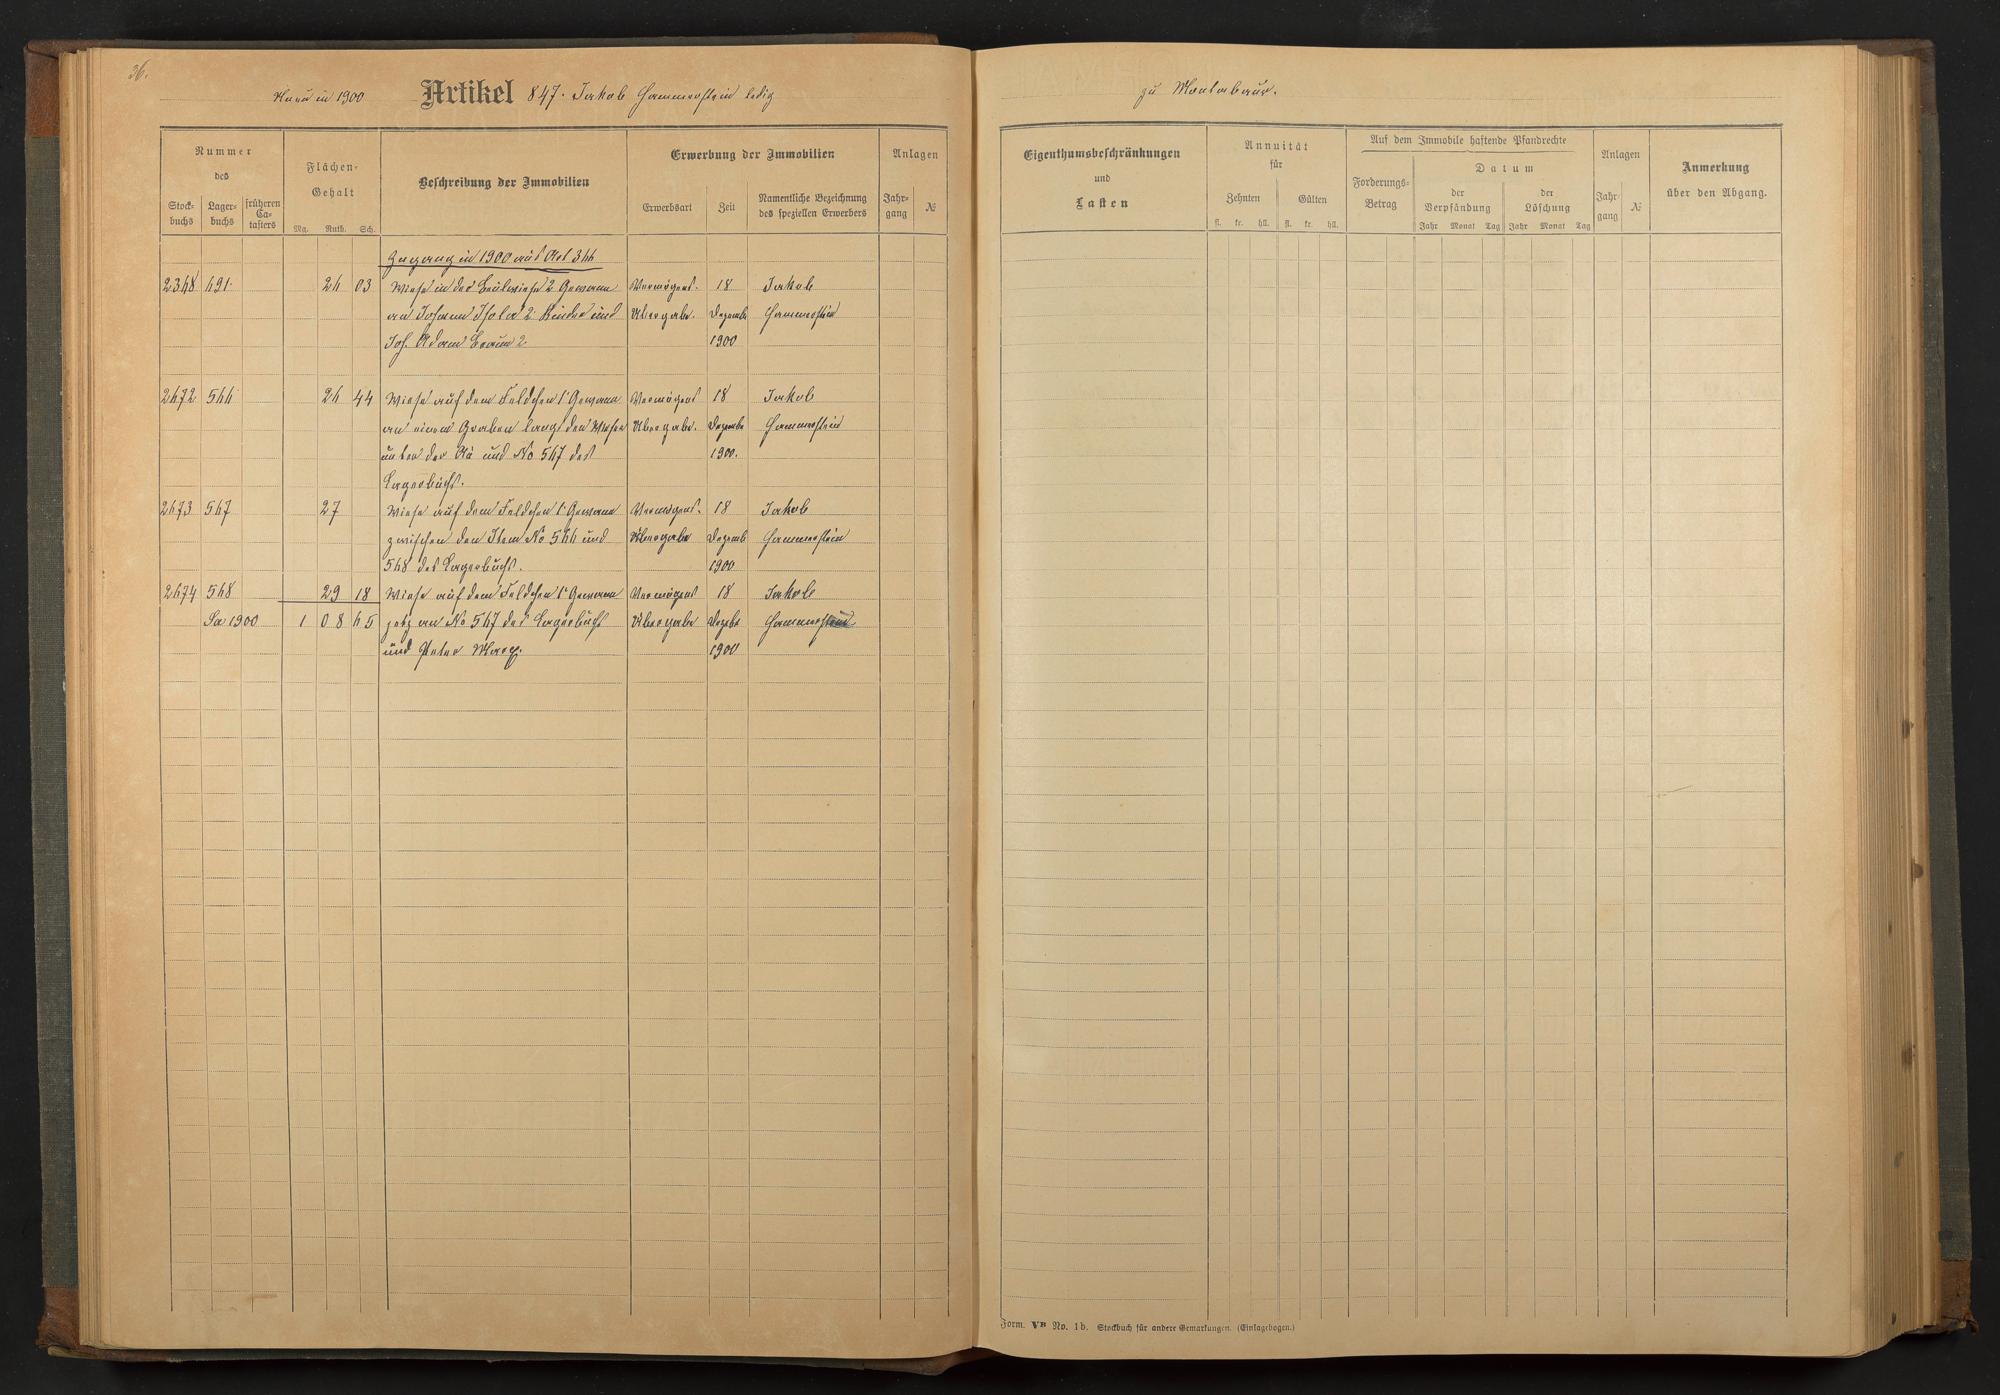 36.
Neu in 1900 Artikel 847. Jakob Hammerstein ledig
zu Montabaur.
Nummer
des
Stock-
buchs
Lager-
buchs
früheren
Ca-
tasters
Flächen-
Gehalt
Mg. Ruth. Sch.
Beschreibung der Immobilien
Erwerbung der Immobilien
Erwerbsart
Zeit
Namentliche Bezeichnung
des speziellen Erwerbers
Anlagen
Jahr-
gang
№
Eigenthumsbeschränkungen
und
Lasten
Annuität
für
Zehnten
Gülten
fl. kr. hll. fl. kr. hll.
Auf dem Immobile haftende Pfandrechte
Forderungs-
Betrag
Datum
der
Verpfändung
der
Löschung
Jahr Monat Tag Jahr Monat Tag
Anlagen
Jahr-
gang
№
Anmerkung
über den Abgang.
Zugang in 1900 aus Art 366
2368 691. 26 03 Wiese in der 2 Gewann Vermögens- 18 Jakob
an Johann 2. Kinder und Übergabe. Dezemb Hammerstein
Joh. Adam Braun 2. 1900
2672 566 26 44 Wiese auf dem Feldchen 1. Gewann Vermögens 18 Jakob
an einem Graben langs den Wiesen Übergabe. Dezembe Hammerstein
unter der Aü und No 567 des 1900.
Lagerbuchs.
2673 567 27 Wiese auf dem Feldchen 1. Gewann Vermögens- 18 Jakob
zwischen den Item No 566 und Übergabe Dezemb Hammerstein
568 des Lagerbuchs. 1900
2674 568 29 18 Wiese auf dem Feldchen 1. Gewann Vermögens 18 Jakob
Sa 1900 1 08 65 an No 567 des Lagerbuchs Übergabe Dezbr Hammerstein
und Peter Marx. 1900
Form. VB No. 1b. Stockbuch für andere Gemarkungen. (Einlagebogen.)